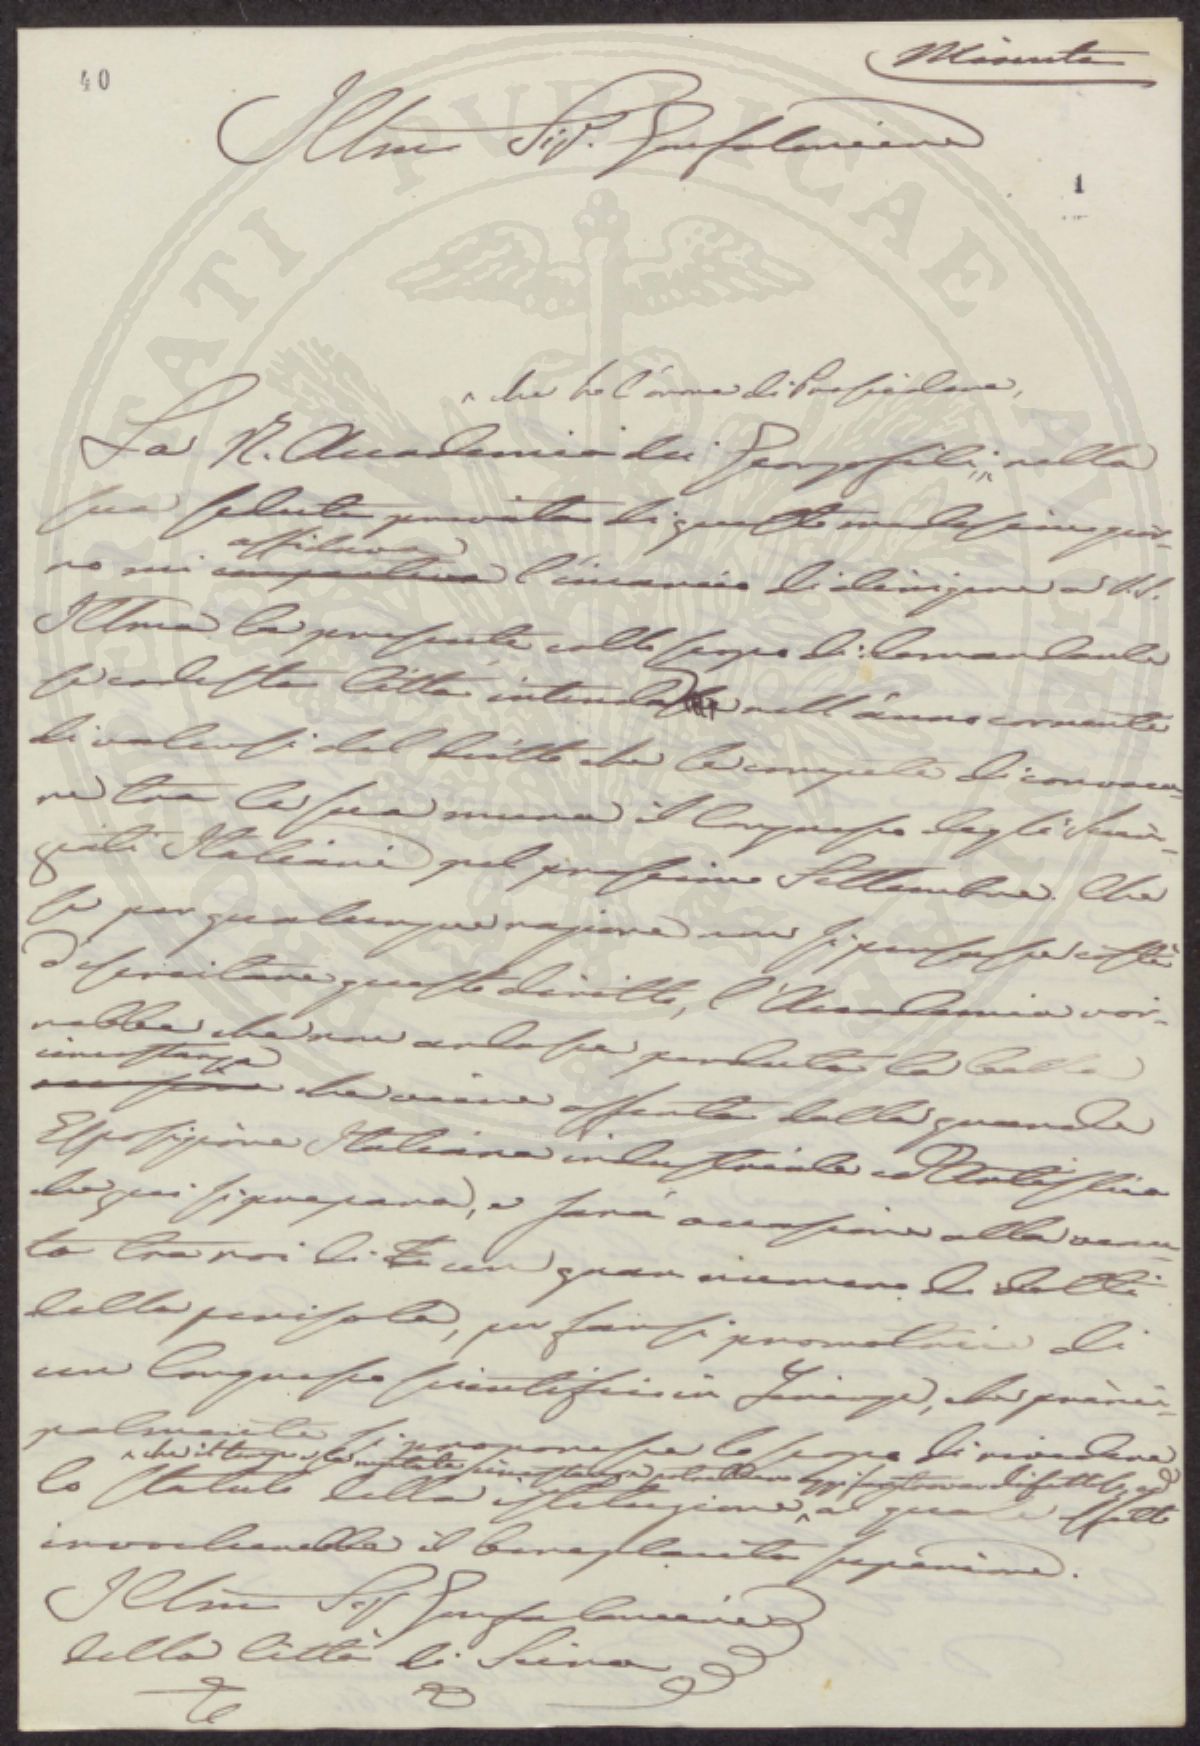 40
Minuta
Illmo Sigr. Gonfaloniere
1
che ho l'onore di Presiedere,
La R. Accademia dei Georgofili, nella
sua seduta privata di questo medesimo gior-
affidava
no mi compartiva l'incarico di dirigere a V.S.
Illma la presente collo scopo di: domandarle
se codesta Città intenda nell'anno corrente
di valersi del diritto che le compete di convoca-
re tra le sue mura il Congresso degli Scien-
ziati Italiani pel prossimo Settembre. Che
se per qualunque ragione non si pensasse costì
d'esercitare questo diritto, l'Accademia vor-
rebbe che non andasse perduta la bella
circostanza
occasione che viene offerta dalla grande
Esposizione Italiana industriale ed Artistica
che qui si prepara, e sarà occasione alla venu-
ta tra noi di un gran numero di dotti
della penisola, per farsi promotrice di
un Congresso scientifico in Firenze, che princi-
palmente si proponesse lo scopo di rivedere
che il tempo e le mutate circostanze potrebbero oggi far trovar difettoso, ed
lo Statuto della istituzione, al quale effetto
invocherebbe il beneplacito superiore.
Illmo Sigr Gonfaloniere
della Città di Siena